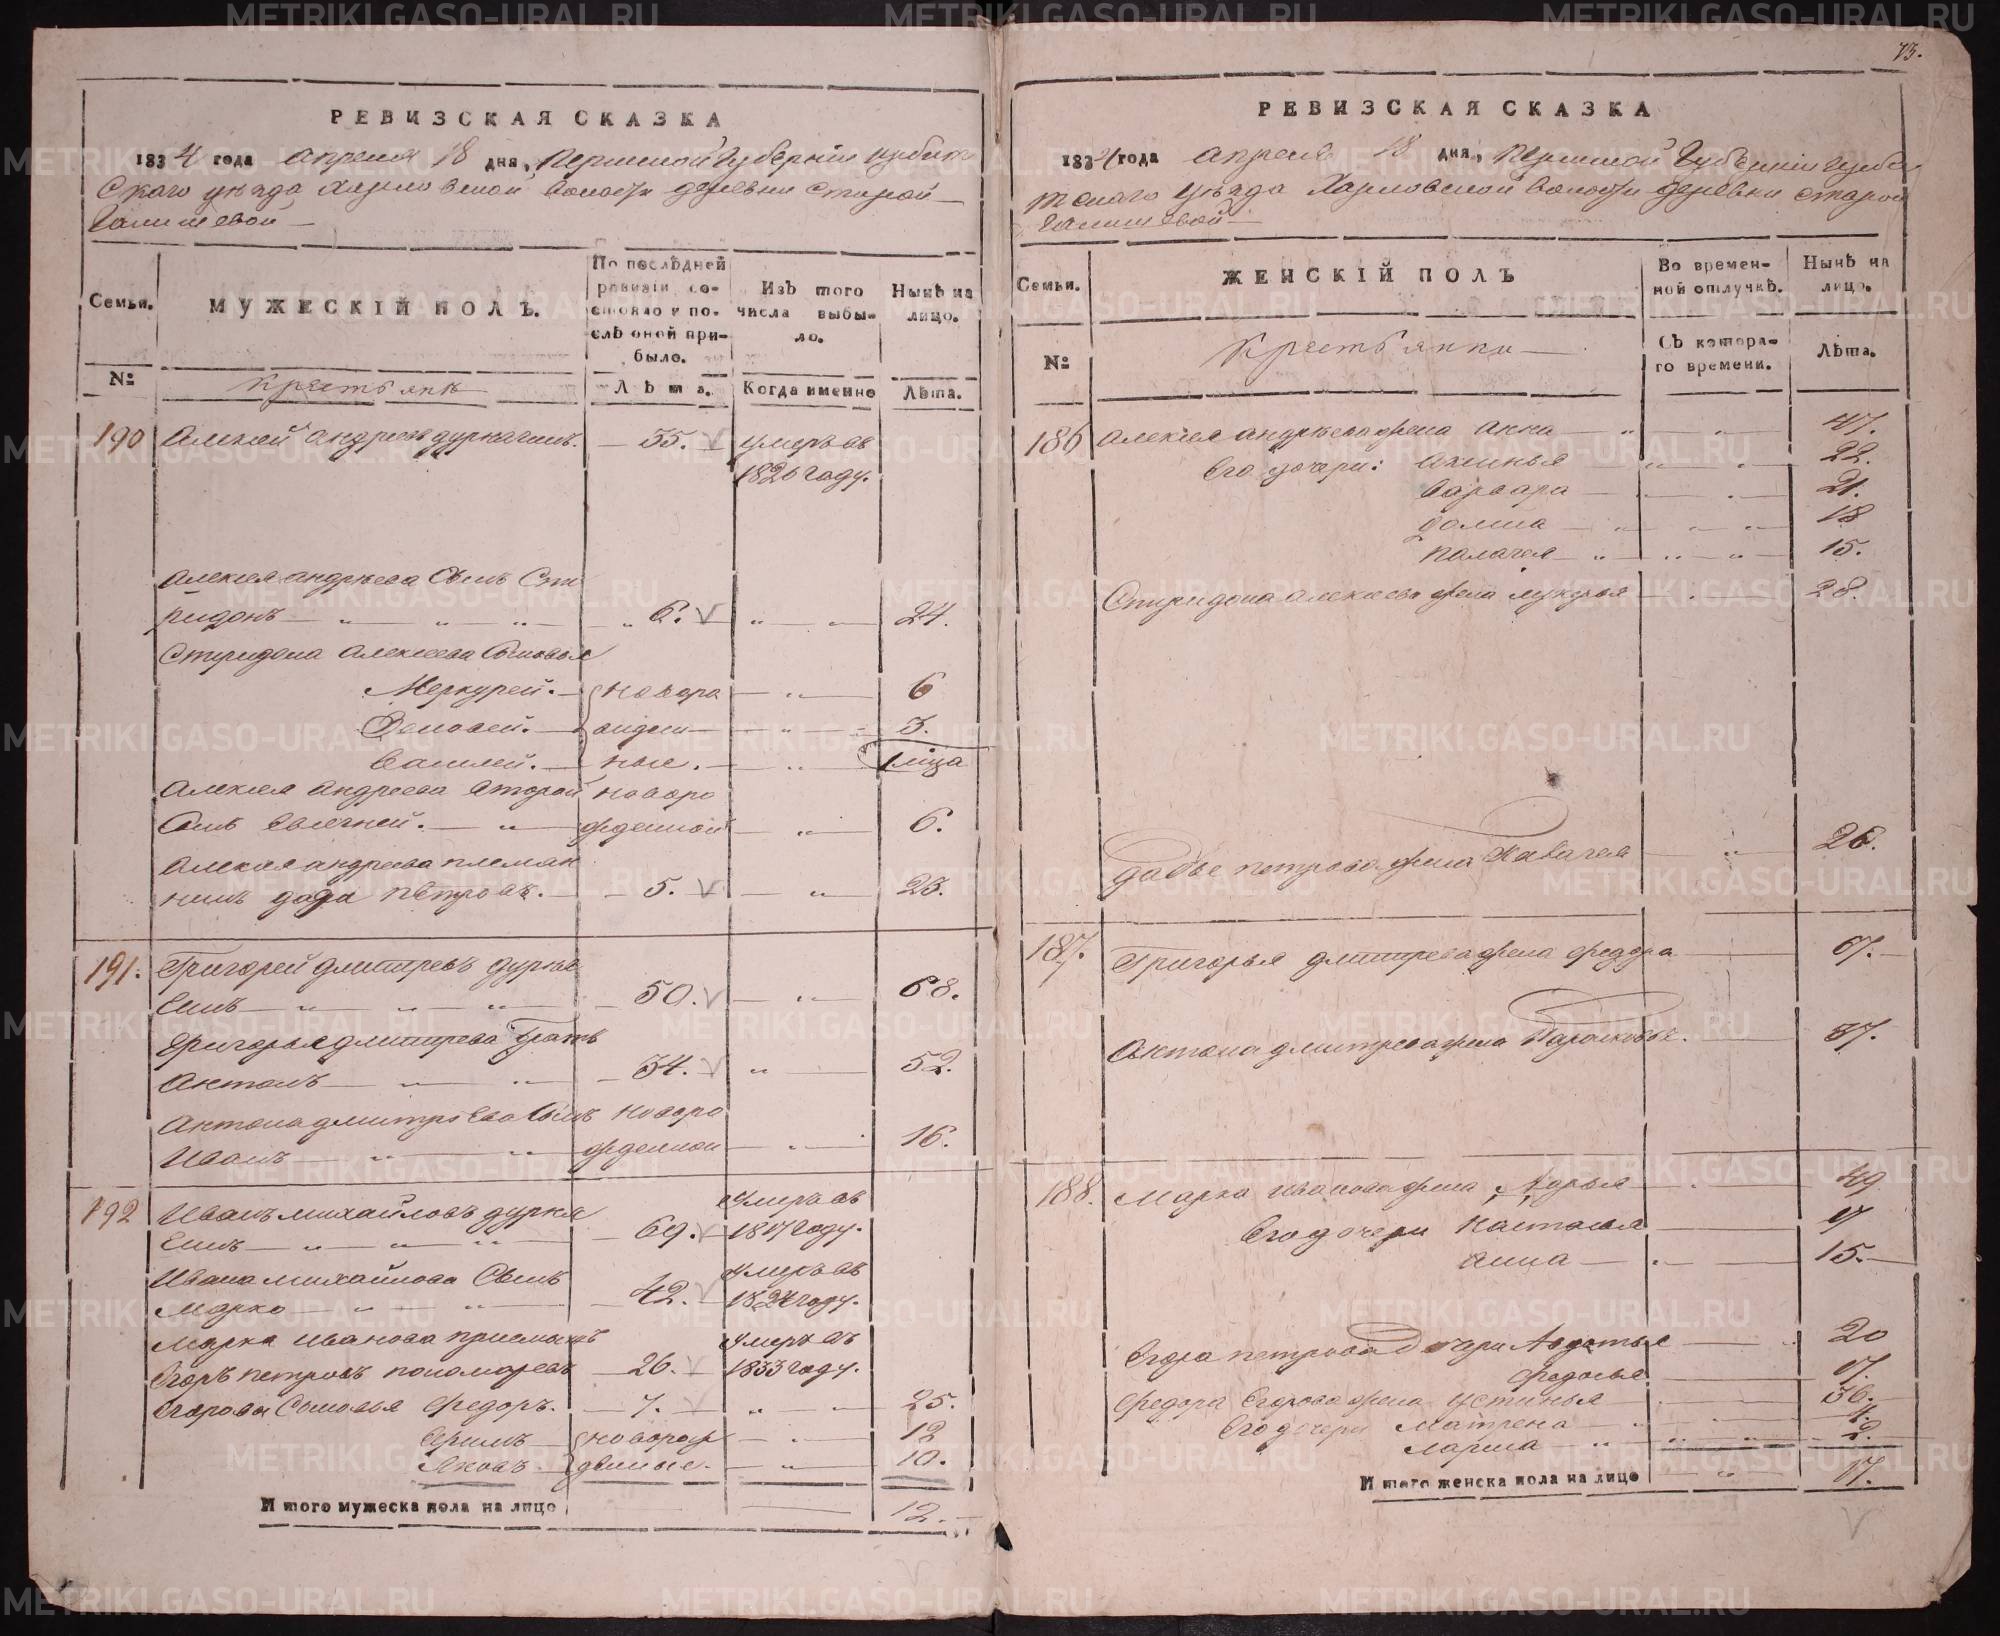 73.
РЕВИЗСКАЯ СКАЗКА
1834 года апреля 18 дня, Пермской Губернии Ирбит
скаго уезда Харловской волости деревни старой
Галишевой
Семьи.
МУЖЕСКІЙ ПОЛЪ.
По послѣдней ревизіи состояло и послѣ оной прибыло.
Изъ того числа выбыло.
Нынѣ на лицо.
№
Крестьяне
Лѣта.
Когда именно
Лѣта.
190 Алексей Андреевъ 55. умеръ въ
1826 году.
Алексея Андреева Сынъ Спи
ридонъ 6. 24.
Спиридона Алексеева Сыновья
Меркурей. новоро 6
3.
Василей. ные. 1 мца
Алексея Андреева второй новоро
Сынъ жденной 6.
Алексея Андреева племян
никъ Петровъ. 5. 23.
191. Григорей Дмитревъ
50. 68.
Григорья Дмитрева Братъ
Антонъ 34. 52.
Антона Дмитрева Сынъ новоро
Иванъ жденной 16.
192 Иванъ Михайловъ умеръ въ
69. 1817 году.
Ивана Михайлова Сынъ умеръ въ
Марко 42. 1824 году.
Марка Иванова приемышъ умеръ въ
Егоръ Петровъ Пономаревъ 26. 1833 году.
Егорова Сыновья Федоръ. 7. 25.
новорож 12
Яковъ денные. 10.
И того мужеска пола на лицо 12.
РЕВИЗСКАЯ СКАЗКА
1834 года апреля 18 дня, Пермской Губернии Ирби
тскаго уезда Харловской волости деревни старой
Галишевой
Семьи.
ЖЕНСКІЙ ПОЛЪ
Во временной отлучкѣ.
Нынѣ на лицо.
№
Крестьянки
Съ котораго времени.
Лѣта.
186 Алексея Андреева жена Анна 47.
Его дочери: Аксинья 22.
Варвара 21.
Домна 18
Палагея 15.
Спиридона Алексеева жена Лукерья 28.
Петрова жена 26.
187. Григорья Дмитрева жена Федора 67.
Антона Дмитрева жена 37.
188. Марка Иванова жена Дарья 49
Его дочери Настасья 17
Анна 15.
Егора Петрова Дочери Авдотья 20
Федосья 17.
Федора Егорова жена Устинья 36.
Его дочери Матрена 4.
Марина 2.
И того женска пола на лицо 17.
METRIKI.GASO-URAL.RU